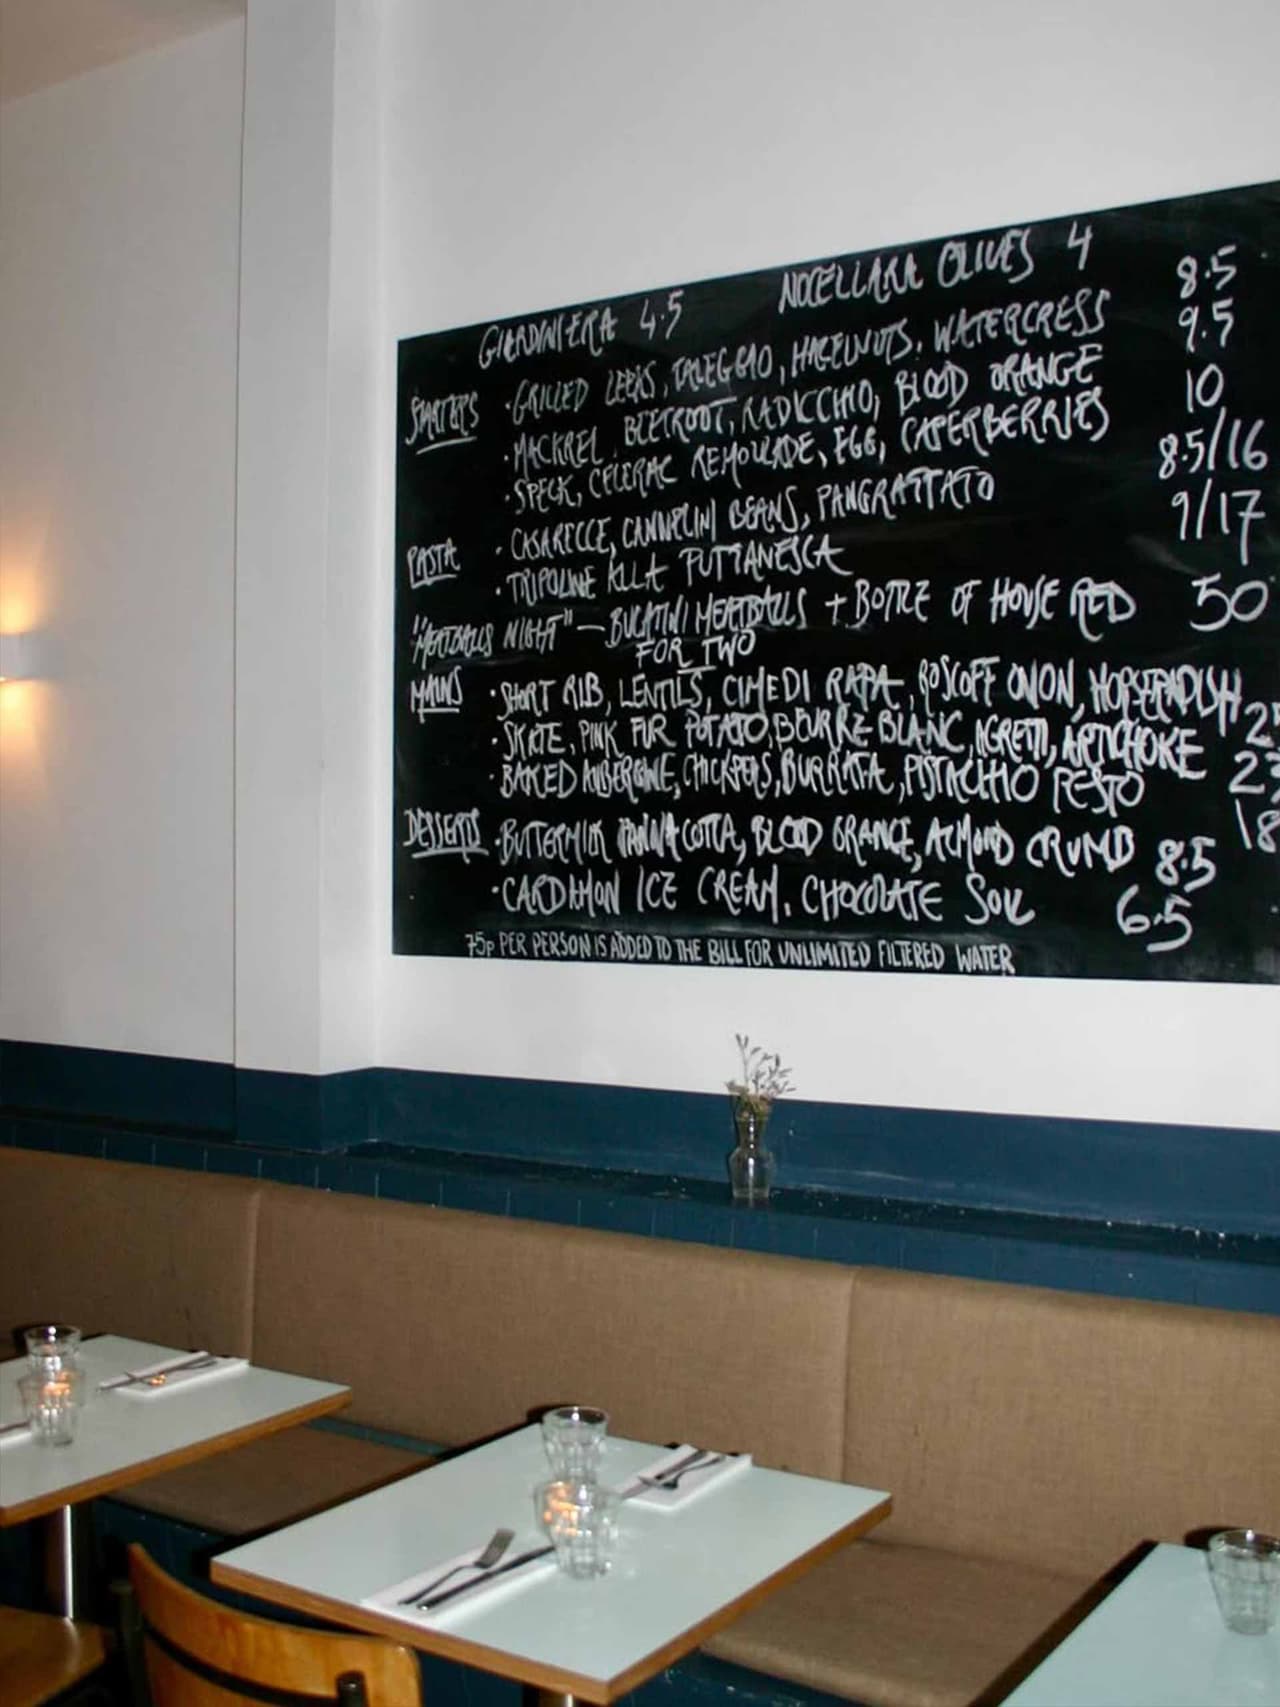 GIARDINIERA 4.5 NOCELLARA OLIVES 4
STARTERS · GRILLED LEEKS, TALEGGIO, HAZELNUTS, WATERCRESS 8.5
· MACKREL, BEETROOT, RADICCHIO, BLOOD ORANGE 9.5
· SPECK, CELERIAC REMOULADE, EGG, CAPERBERRIES 10
PASTA · CASARECCE, CANNELINI BEANS, PANGRATTATO 8.5/16
· TRIPOLINE ALLA PUTTANESCA 9/17
"MEATBALLS NIGHT" — BUCATINI MEATBALLS + BOTTLE OF HOUSE RED 50
FOR TWO
MAINS · SHORT RIB, LENTILS, CIME DI RAPA, ROSCOFF ONION, HORSERADISH
· SKATE, PINK FUR POTATO, BEURRE BLANC, AGRETTI, ARTICHOKE
· BAKED AUBERGINE, CHICKPEAS, BURRATA, PISTACHIO PESTO 18
DESSERTS · BUTTERMILK PANNACOTTA, BLOOD ORANGE, ALMOND CRUMB 8.5
· CARDAMON ICE CREAM, CHOCOLATE SOIL 6.5
75p PER PERSON IS ADDED TO THE BILL FOR UNLIMITED FILTERED WATER